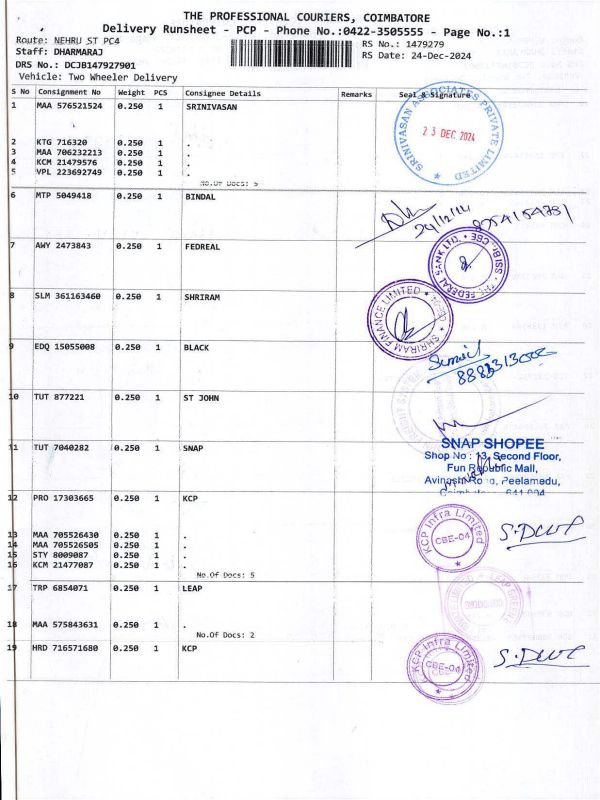 THE PROFESSIONAL COURIERS, COIMBATORE
Delivery Runsheet - PCP - Phone No.:0422-3505555 - Page No.:1
Route: NEHRU ST PC4
RS No.: 1479279
Staff: DHARMARAJ
RS Date: 24-Dec-2024
DRS No.: DCJB147927901
Vehicle: Two Wheeler Delivery
S No Consignment No Weight PCS Consignee Details Remarks Seal & Signature
1 MAA 576521524 0.250 1 SRINIVASAN
SRINIVASAN ASSOCIATES PRIVATE LIMITED
23 DEC 2024
2 KTG 716320 0.250 1 .
3 MAA 706232213 0.250 1 .
4 KCM 21479576 0.250 1 .
5 VPL 223692749 0.250 1 .
No.Of Docs: 5
6 MTP 5049418 0.250 1 BINDAL
7 AWY 2473843 0.250 1 FEDREAL
FEDERAL BANK LTD.
8 SLM 361163460 0.250 1 SHRIRAM
SHRIRAM FINANCE LIMITED
9 EDQ 15055008 0.250 1 BLACK
10 TUT 877221 0.250 1 ST JOHN
11 TUT 7040282 0.250 1 SNAP
SNAP SHOPEE
Shop No : 13, Second Floor,
Fun Republic Mall,
Avinashi Road, Peelamedu,
Coimbatore - 641 004
12 PRO 17303665 0.250 1 KCP
KCP Infra Limited
CBE-04
13 MAA 705526430 0.250 1 .
14 MAA 705526505 0.250 1 .
15 STY 8009087 0.250 1 .
16 KCM 21477087 0.250 1 .
No.Of Docs: 5
17 TRP 6854071 0.250 1 LEAP
18 MAA 575843631 0.250 1 .
No.Of Docs: 2
19 HRD 716571680 0.250 1 KCP
KCP Infra Limited
CBE-04